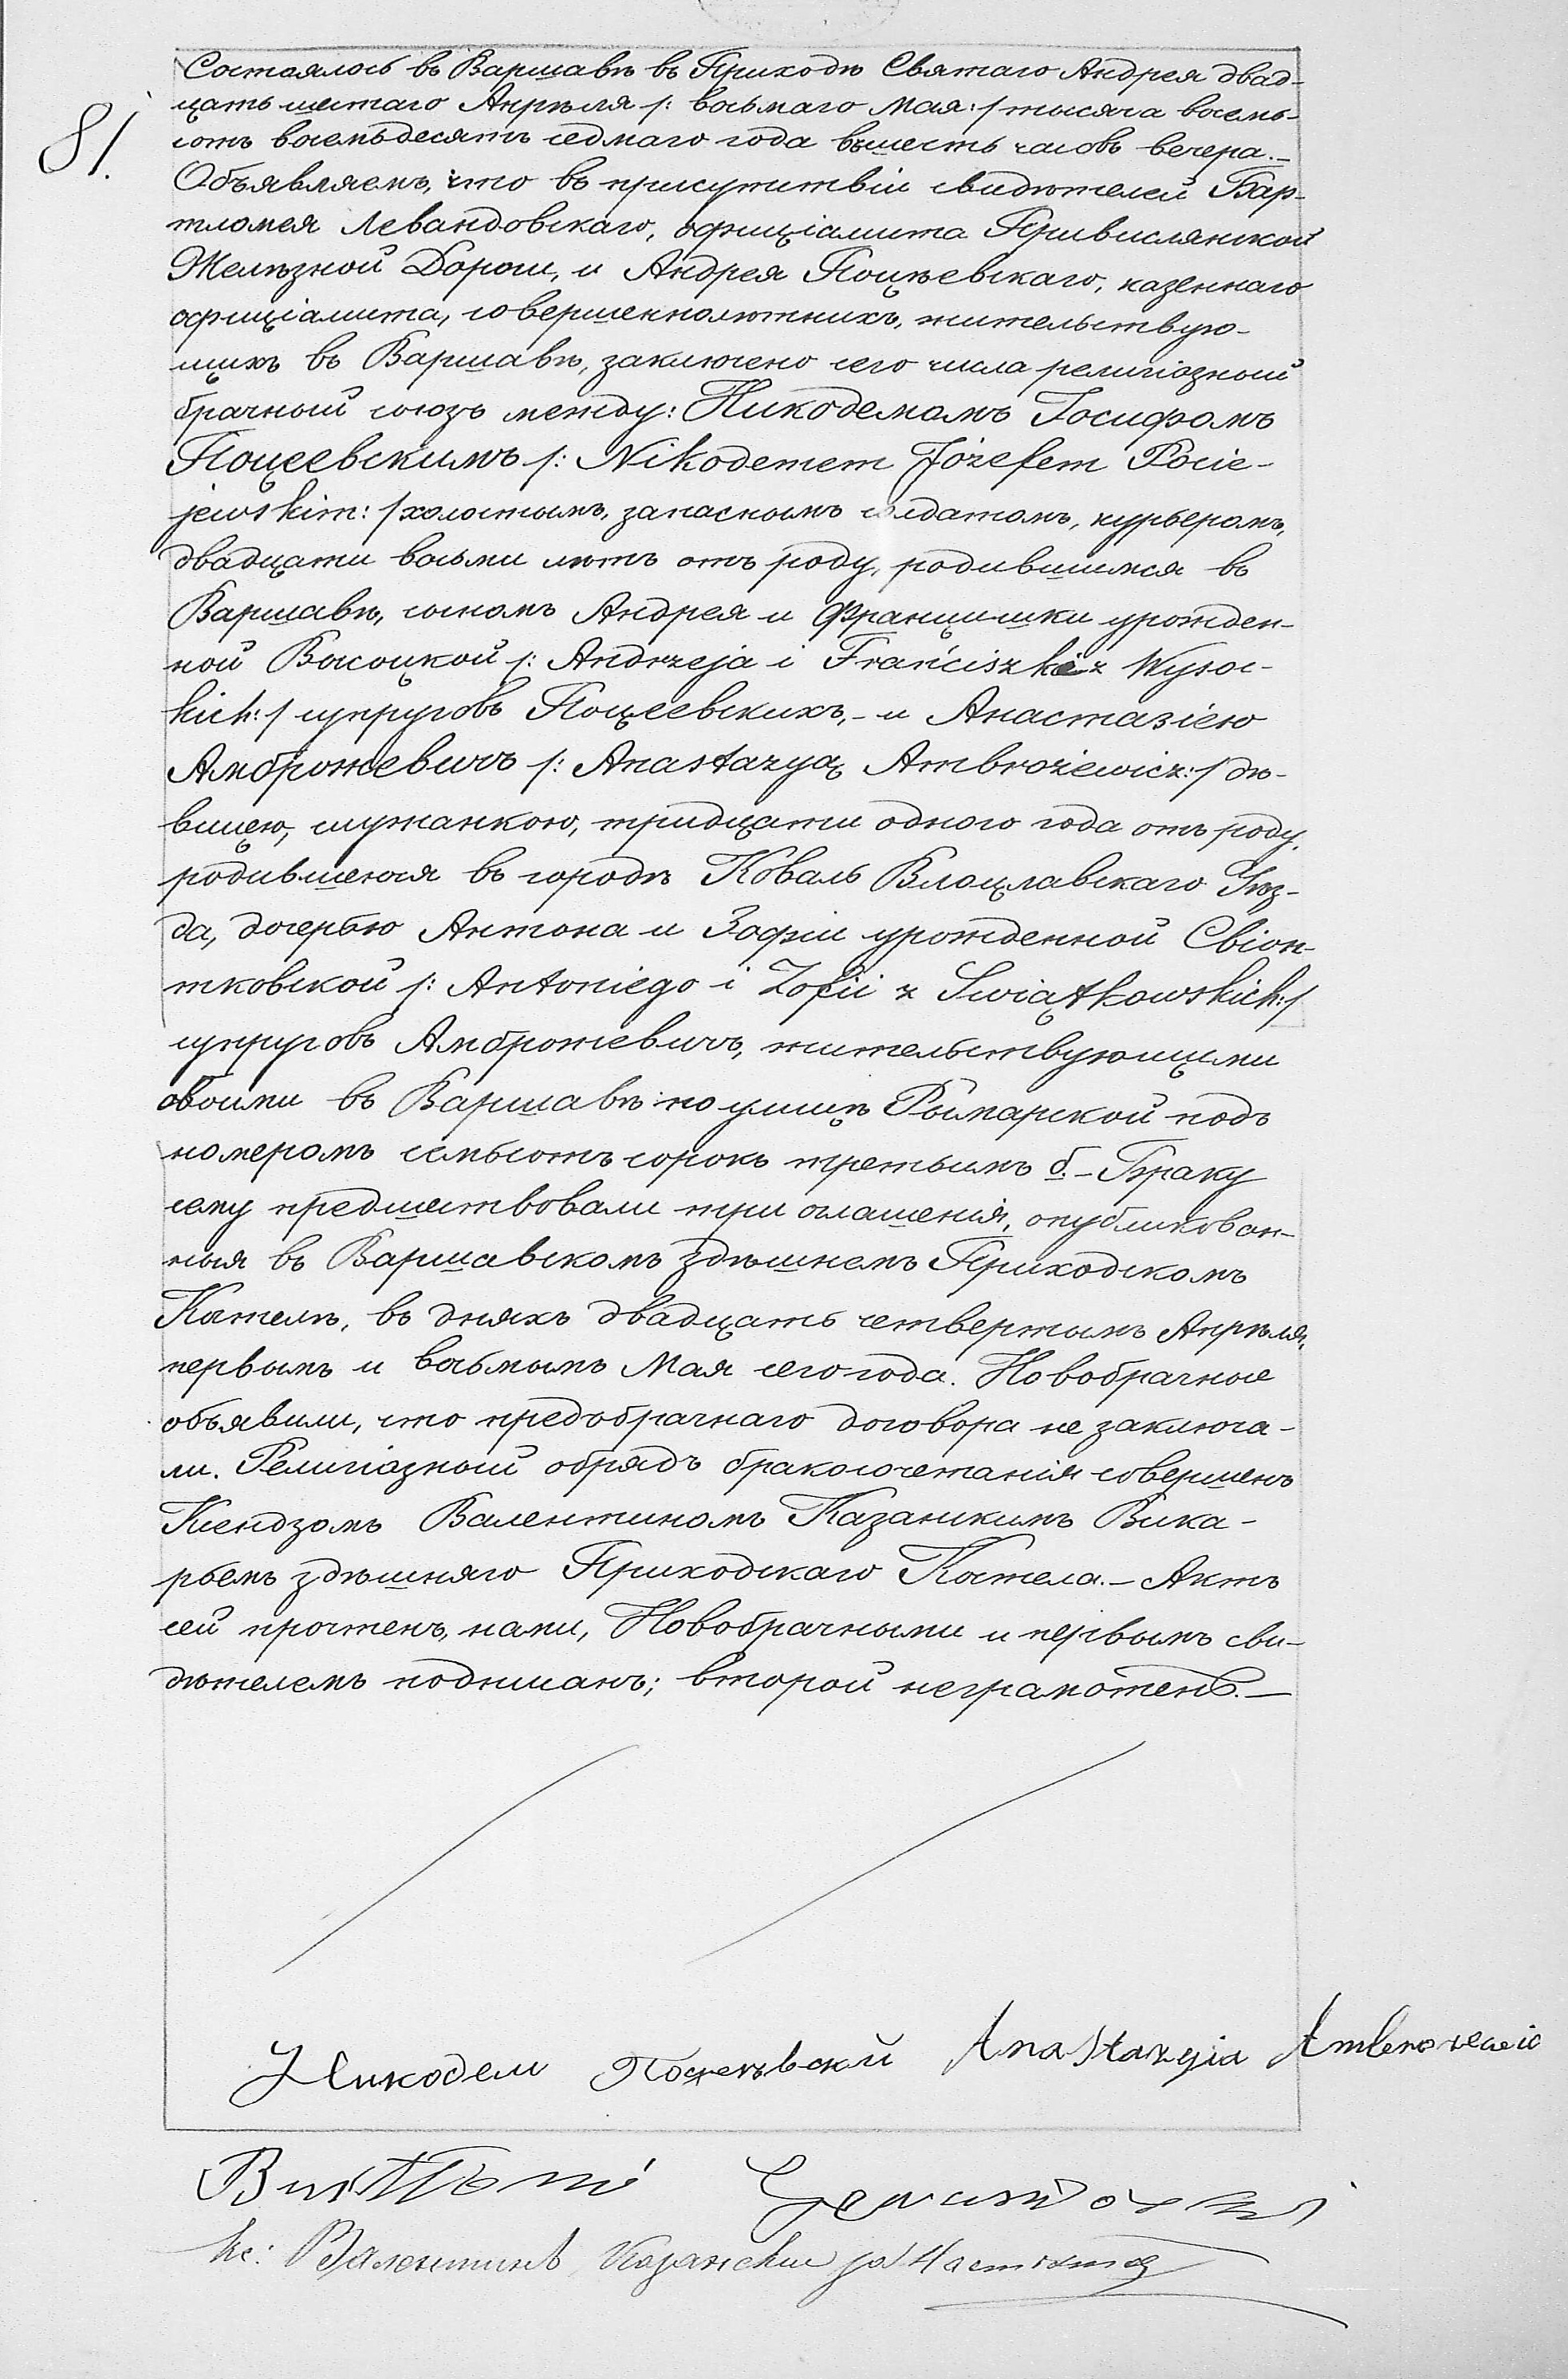 81.
Состоялось въ Варшавѣ въ Приходѣ Святаго Андрея двад-
цать шестаго Апрѣля /: восьмаго Мая :/ тысяча восемь-
сотъ восемьдесятъ седмаго года въ шесть часовъ вечера.–
Объявляемъ, что въ присутствіи свидѣтелей Бар-
тломея Левандовскаго, оффиціалиста Привислянской
Желѣзной Дороги, и Андрея Поцѣевскаго, казеннаго
оффиціалиста, совершеннолѣтнихъ, жительствую-
щихъ въ Варшавѣ, заключено сего числа религіозный
брачный союзъ между: Никодемомъ Іосифомъ
Поцеевскимъ /: Nikodemem Józefem Pocie-
jewskim :/ холостымъ, запаснымъ солдатомъ, курьеромъ,
двадцати восьми лѣтъ отъ роду, родившимся въ
Варшавѣ, сыномъ Андрея и Францишки урожден-
ной Высоцкой /: Andrzeja i Franciszki z Wysoc-
kich :/ супруговъ Поцеевскихъ,– и Анастазіею
Амброжевичъ /: Anastazyą Ambrożewicz :/ дѣ-
вицею, служанкою, тридцати одного года отъ роду,
родившеюся въ городѣ Коваль Влоцлавскаго Уѣз-
да, дочерью Антона и Зофіи урожденной Свіон-
тковской /: Antoniego i Zofii z Swiątkowskich :/
супруговъ Амброжевичъ, жительствующими
обоими въ Варшавѣ по улицѣ Рымарской подъ
номеромъ семьсотъ сорокъ третьимъ б.– Браку
сему предшествовали три оглашенія, опубликован-
ныя въ Варшавскомъ здѣшнемъ Приходскомъ
Костелѣ, въ дняхъ двадцать четвертымъ Апрѣля,
первымъ и восьмымъ Мая сего года. Новобрачные
объявили, что предбрачнаго договора не заключа-
ли. Религіозный обрядъ бракосочетанія совершенъ
Ксендзомъ Валентиномъ Казанскимъ Вика-
рьемъ здѣшняго Приходскаго Костела.– Актъ
сей прочтенъ, нами, Новобрачными и первымъ сви-
дѣтелемъ подписанъ; второй неграмотенъ.–
Никодем Поцеевский Anastazyia Ambrozewic
Кс: Валентинъ Казанскій